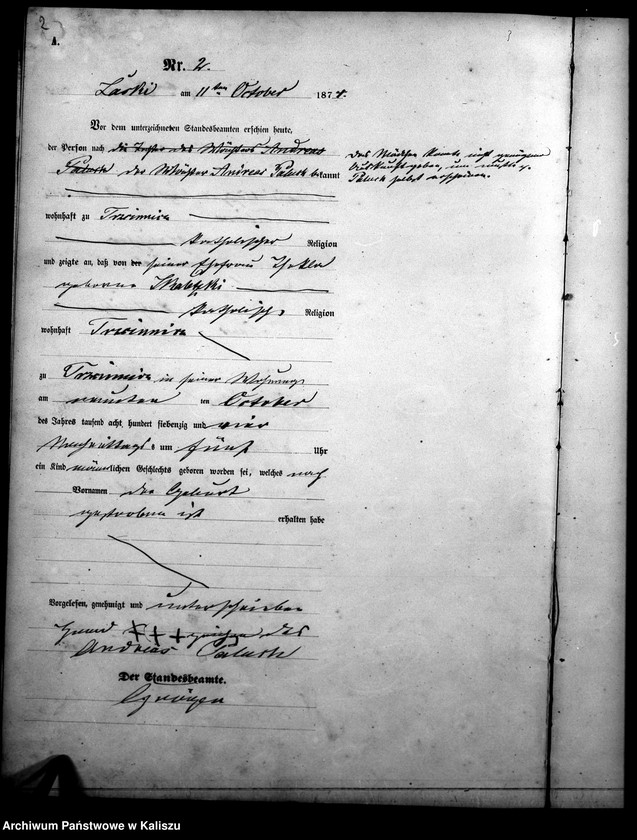 2
A.
Nr. 2.
Laski am 11ten October 1874.
Vor dem unterzeichneten Standesbeamten erschien heute,
der Person nach die Tochter des Andreas
Paluch der Andreas Paluch bekannt
Das Mädchen konnte nicht genügend
Auskunft geben, und mußte p.
Paluch selbst erscheinen.
wohnhaft zu Trzcinnica
katholischer Religion
und zeigte an, daß von der seiner Ehefrau Thekla
geborene
katholischer Religion
wohnhaft Trzcinnica
zu Trzcinnica in seiner Wohnung
am neunten ten October
des Jahres tausend acht hundert siebenzig und vier
Nachmittags um fünf Uhr
ein Kind männlichen Geschlechts geboren worden sei, welches nach
Vornamen der Geburt
gestorben ist erhalten habe
Vorgelesen, genehmigt und unterschrieben
+ + + des
Andreas Paluch
Der Standesbeamte.
Archiwum Państwowe w Kaliszu